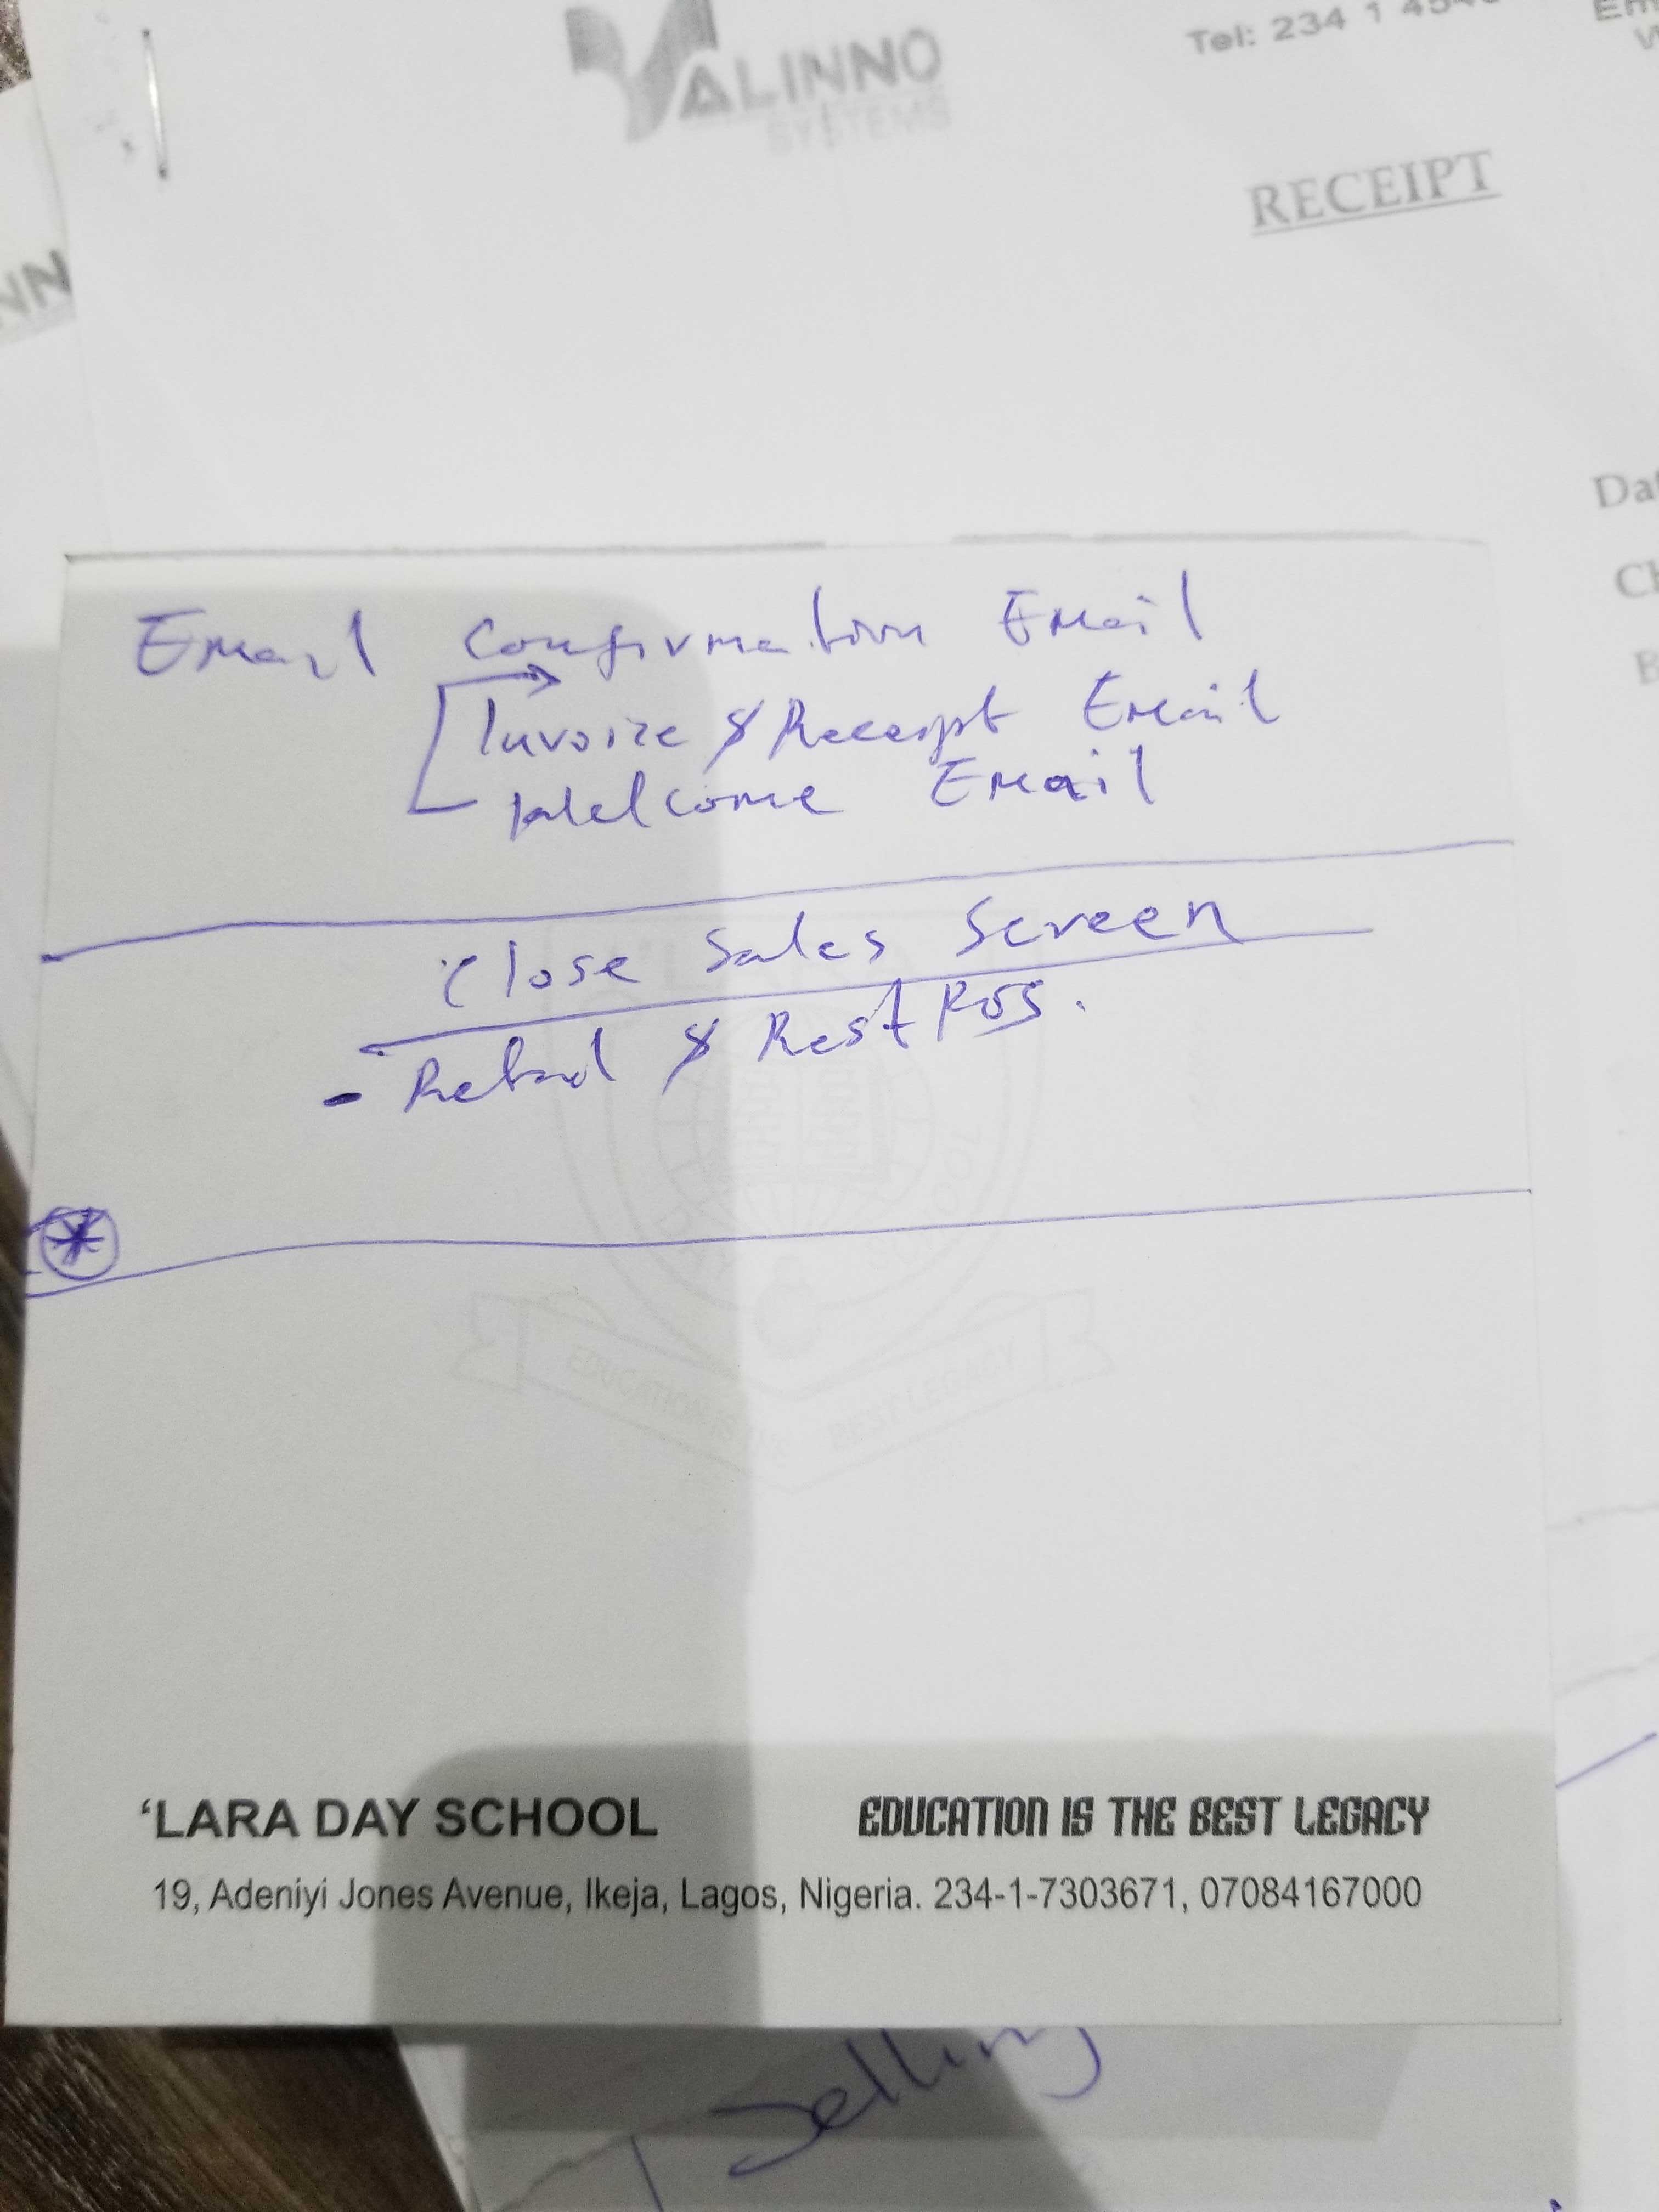 VALINNO
SYSTEMS
Tel: 234 1
RECEIPT
Email Confirmation Email
Invoice & Receipt Email
Welcome Email
Close Sales Screen
- Retail & Rest POS.
EDUCATION IS THE BEST LEGACY
'LARA DAY SCHOOL EDUCATION IS THE BEST LEGACY
19, Adeniyi Jones Avenue, Ikeja, Lagos, Nigeria. 234-1-7303671, 07084167000
Selling